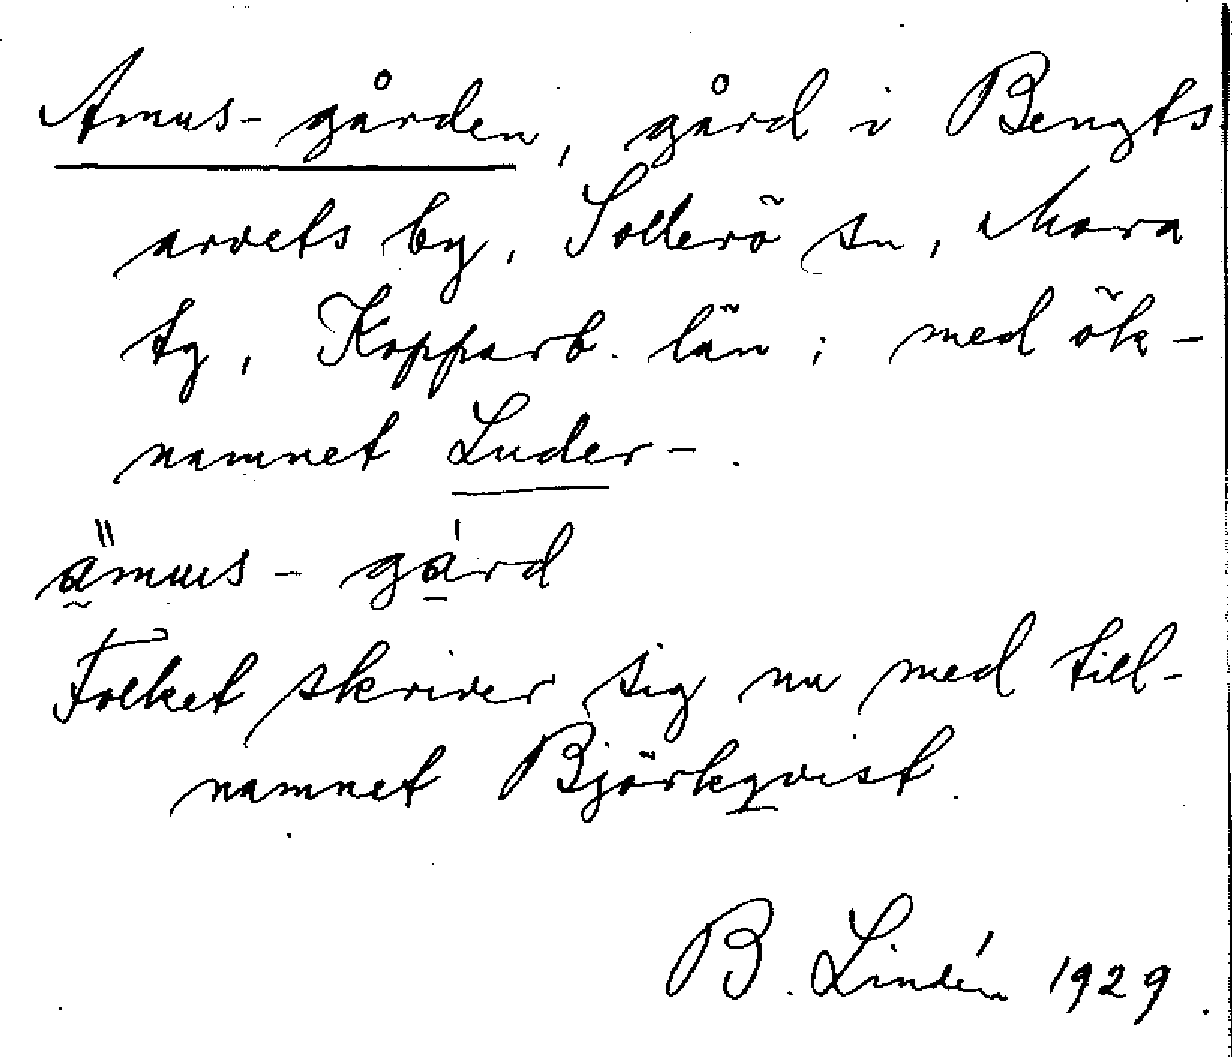 Amus-gården, gård i Bengts
arvets by, Sollerö sn, Mora
tg, Kopparb. län; med ök-
namnet Luder-.
a̰̋mus-gá̱rd
Folket skriver sig nu med till-
namnet Björkqvist.
B. Lindén 1929.